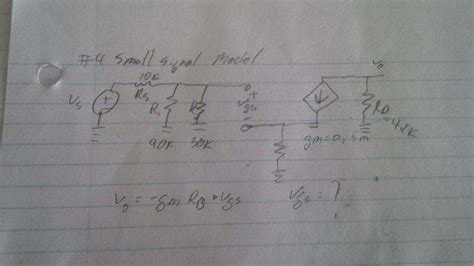 #4 Small Signal Model
10K
Rs
Vs
R1
90K
30K
+
Vgs
-
Vo
RD
gm=0,5m
Vo = -gm RD • Vgs
Vgs = ?